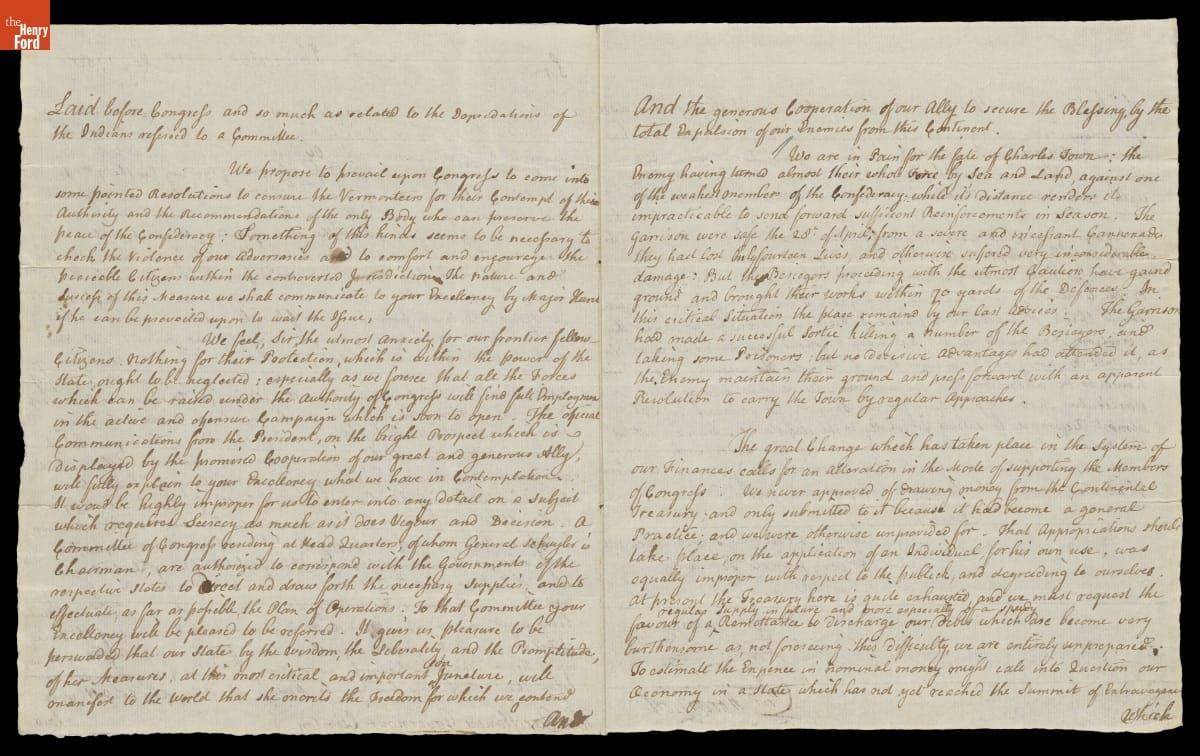 the
Henry
Ford
Laid before Congress and so much as related to the Depredations of
the Indians refered to a Committee.
We propose to prevail upon Congress to come into
some pointed Resolutions to censure the Vermonteers for their Contempt of their
Authority and the Recommendations of the only Body who can preserve the
peace of the Confederacy: Something of this kind seems to be necessary to
check the Violence of our Adversaries and to comfort and encourage the
peaceable Citizens within the controverted Jurisdiction. The nature and
success of this Measure we shall communicate to your Excellency by Major Hunt
if he can be prevailed upon to wait the Issue,
We feel, Sir the utmost anxiety for our frontier fellow
Citizens. Nothing for their Protection, which is within the power of the
State, ought to be neglected; especially as we foresee that all the Forces
which can be raised under the Authority of Congress will find full Employmen
in the active and offensive Campaign which is soon to open. The official
Communications from the President, on the bright Prospect which is
displayed by the promised Cooperation of our great and generous Ally,
will fully explain to your Excellency what we have in Contemplation.
It would be highly improper for us to enter into any detail on a subject
which requires Secrecy as much as it does Vigour and Decision. A
Committee of Congress residing at Head Quarters, of whom General Schuyler is
Chairman, are authorized to correspond with the Governments of the
respective States to direct and draw forth the necessary Supplies, and to
effectuate, as far as possible the Plan of Operations. To that Committee your
Excellency will be pleased to be refered. It gives us pleasure to be
perswaded that our State by the wisdom, the Liberality, and the Promptitude,
of her Measures, at this most critical and important Juncture, will
manifest to the world that she merits the Freedom for which we contend
And
And the generous Cooperation of our Ally to secure the Blessing, by the
total Expulsion of our Enemies from this Continent.
We are in Pain for the fate of Charles Town: the
Enemy having turned almost their whole Force by Sea and Land, against one
of the weakest member of the Confederacy; while it's distance renders it
impracticable to send forward sufficient Reinforcements in Season. The
Garrison were safe the 28th of April; from a severe and incessant Cannonade
they had lost only fourteen Lives, and otherwise suffered very inconsiderable
damage: But the Besiegers proceding with the utmost Caution have gained
ground and brought their works within 70 yards of the Defences. In
this critical Situation the place remaind by our last Advices. The Garrison
had made a successful Sortie killing a number of the Besiegers, and
taking some Prisoners; but no decisive Advantages had attended it, as
the Enemy maintain their ground and press forward with an apparent
Resolution to carry the Town by regular Approaches.
The great Change which has taken place in the System of
our Finances calls for an alteration in the Mode of supporting the Members
of Congress. We never approved of drawing money from the Continental
Treasury; and only submitted to it because it had become a general
Practice; and we were otherwise unprovided for. That Appropriations should
take place, on the application of an Individual, for his own use, was
equally improper with respect to the publick, and degrading to ourselves.
At present the Treasury here is quite exhausted, and we must request the
regular Supply in future and more especially of a speedy
favour of a Remittance to discharge our Debts which are become very
burthensome as not foreseeing this difficulty, we are entirely unprepared.
To estimate the Expence in nominal money might call into Question our
Oeconomy in a State which has not yet reached the Summit of Extravagance
Which